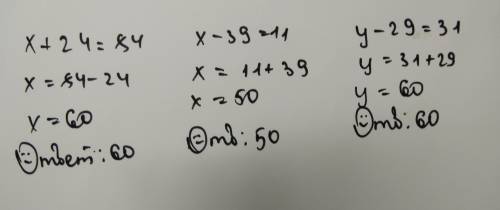 x + 24 = 84
x = 84 - 24
x = 60
Ответ: 60
x - 39 = 11
x = 11 + 39
x = 50
Отв: 50
y - 29 = 31
y = 31 + 29
y = 60
Отв: 60